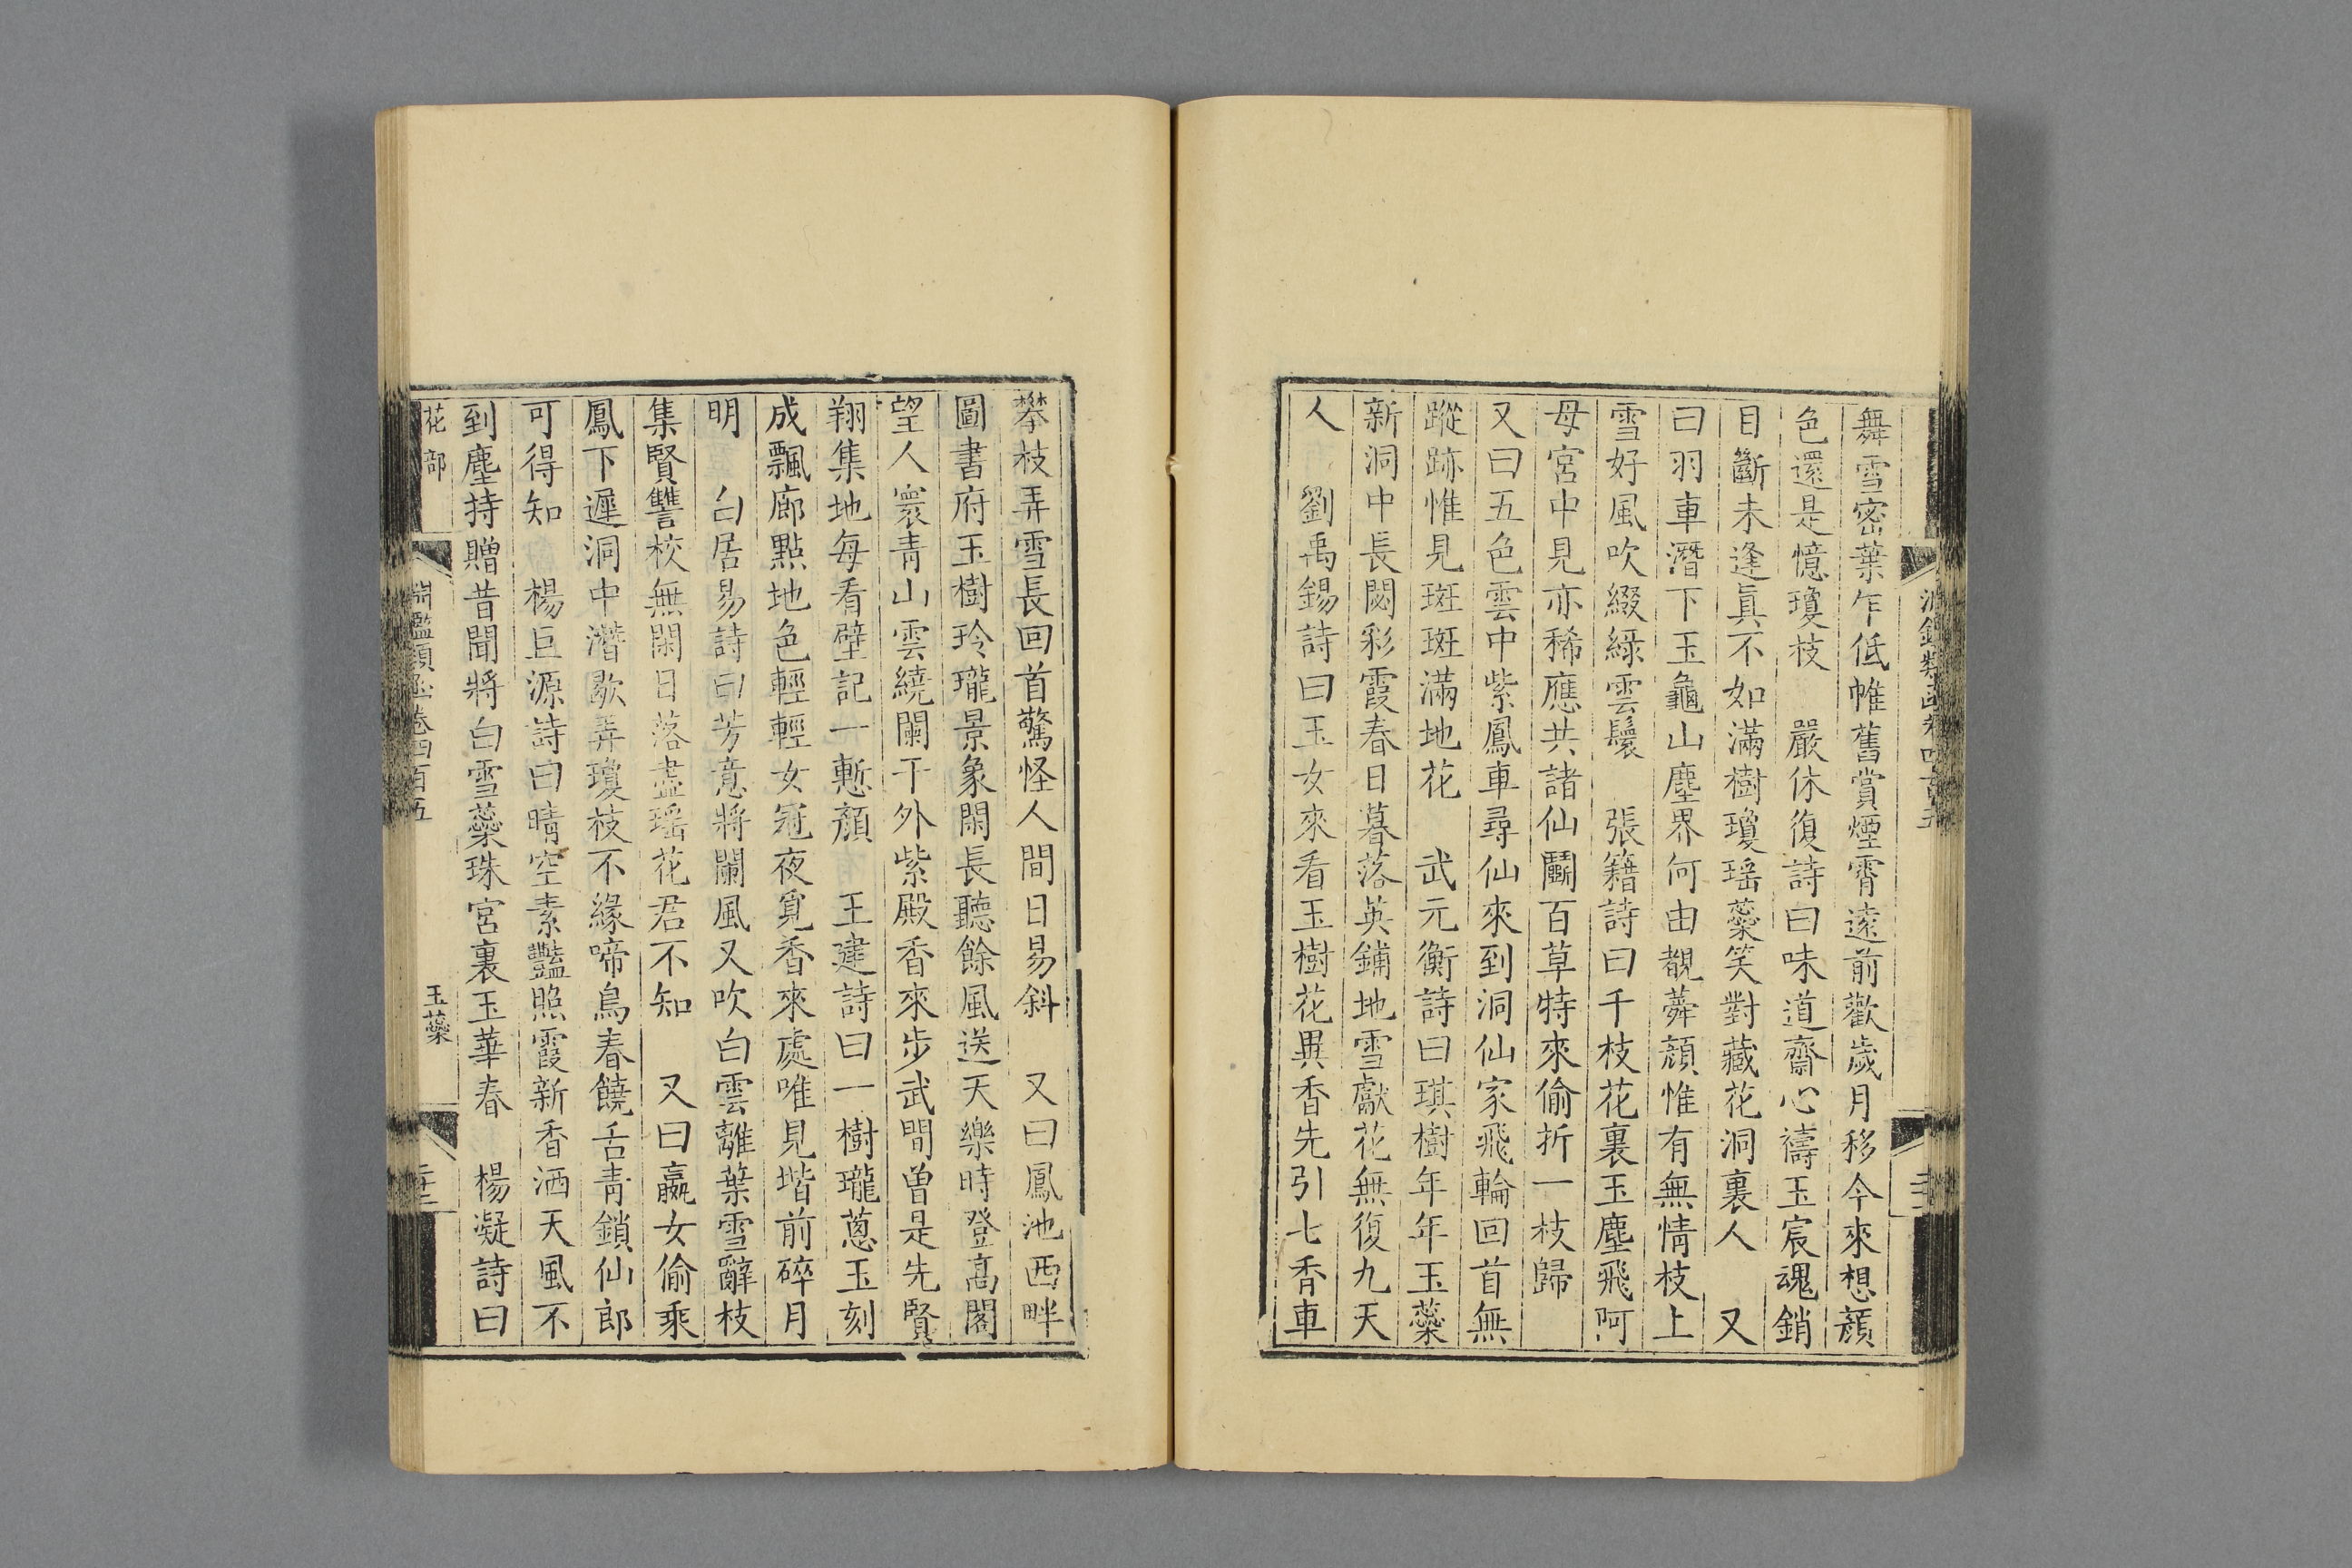 舞雪密葉乍低帷舊賞煙霄遠前歡歲月移今來想顏
色還是憶瓊枝　嚴休復詩曰味道齋心禱玉宸魂銷
目斷未逢真不如滿樹瓊瑤蘂笑對藏花洞裏人　又
曰羽車潛下玉龜山塵界何由覩蕣顏惟有無情枝上
雪好風吹綴綠雲鬟　張籍詩曰千枝花裏玉塵飛阿
母宮中見亦稀應共諸仙鬭百草特來偷折一枝歸
又曰五色雲中紫鳳車尋仙來到洞仙家飛輪回首無
蹤跡惟見斑斑滿地花　武元衡詩曰琪樹年年玉蘂
新洞中長閟彩霞春日暮落英鋪地雪獻花無復九天
人　劉禹錫詩曰玉女來看玉樹花異香先引七香車
攀枝弄雪長回首驚怪人間日易斜　又曰鳳池西畔
圖書府玉樹玲瓏景象閑長聽餘風送天樂時登高閣
望人寰青山雲繞闌干外紫殿香來步武間曾是先賢
翔集地每看壁記一慙顏　王建詩曰一樹瓏蔥玉刻
成飄廊點地色輕輕女冠夜覓香來處唯見堦前碎月
明　白居易詩曰芳意將闌風又吹白雲離葉雪辭枝
集賢讐校無閑日落盡瑤花君不知　又曰嬴女偷乘
鳳下遲洞中潛歇弄瓊枝不緣啼鳥春饒舌青鎖仙郎
可得知　楊巨源詩曰晴空素豔照霞新香洒天風不
到塵持贈昔聞將白雪蘂珠宮裏玉華春　楊凝詩曰
花部　淵鑑類函卷四百五　玉蘂